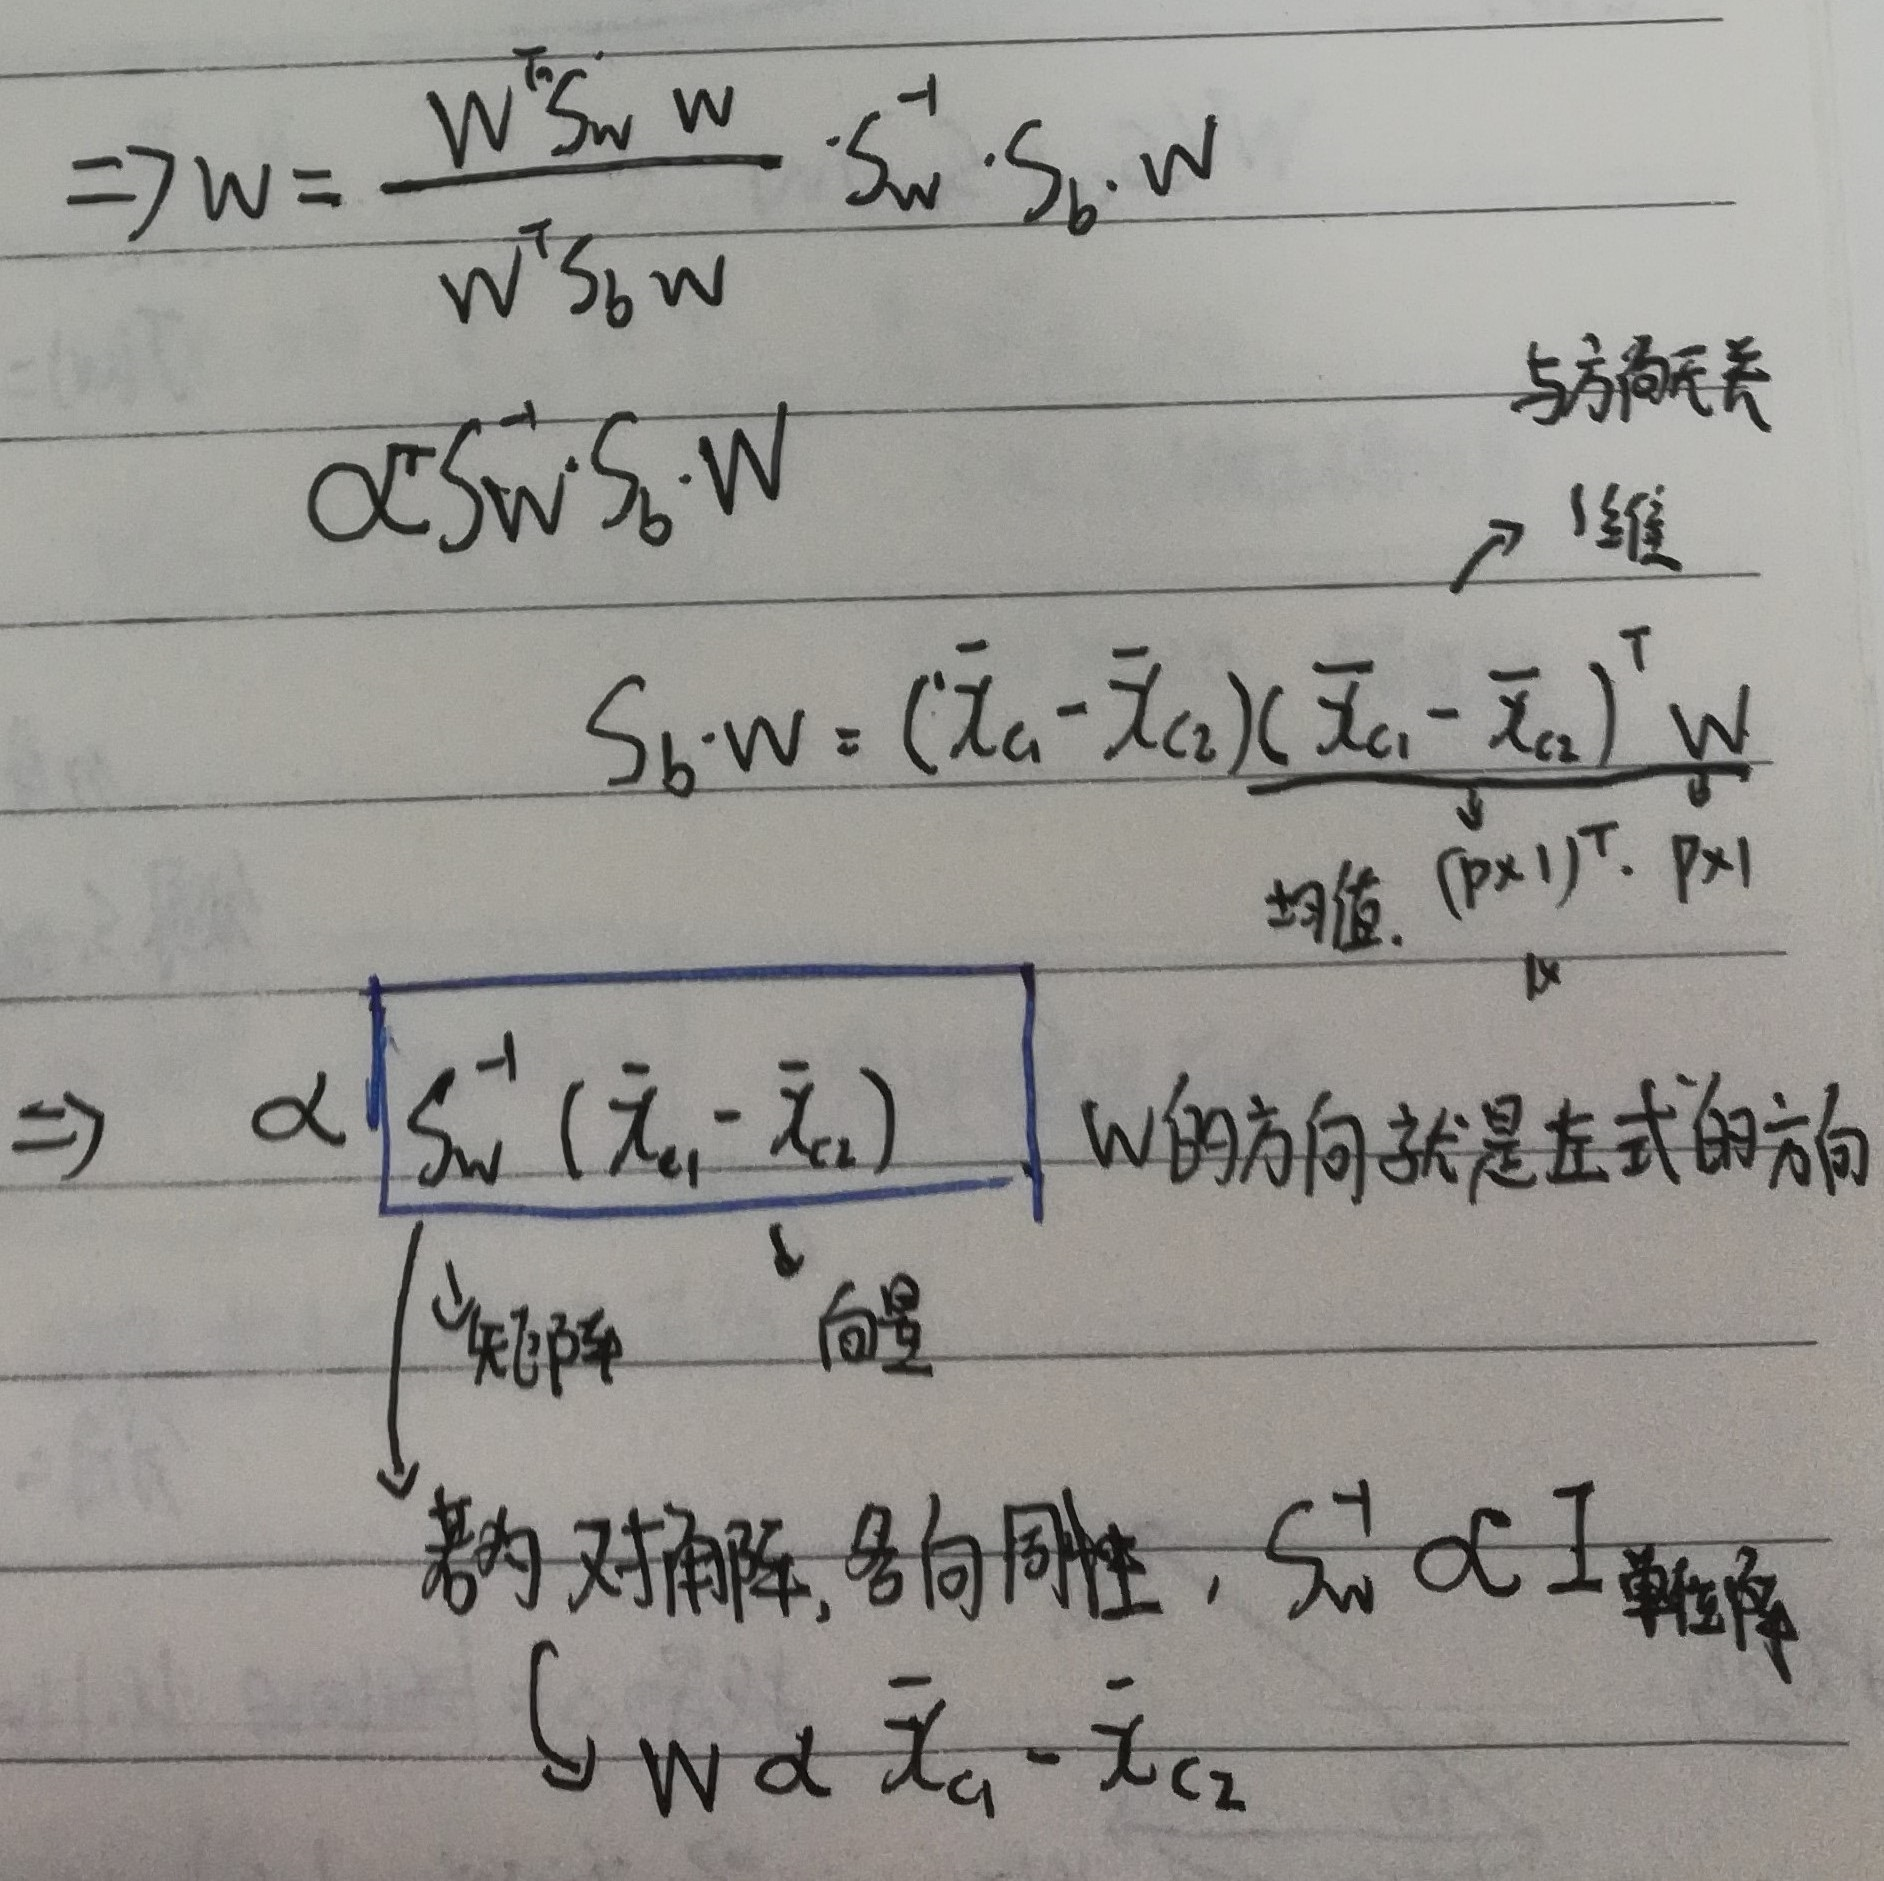 ⇒ W = (WᵀS_w W / WᵀS_b W) · S_w⁻¹ · S_b · W
∝ S_w⁻¹ · S_b · W
与方向无关
↗ 1维
S_b · W = (x̄_c1 - x̄_c2)(x̄_c1 - x̄_c2)ᵀ W
均值. (p×1)ᵀ · p×1
1×
⇒ ∝ S_w⁻¹ (x̄_c1 - x̄_c2) W的方向就是左式的方向
矩阵 向量
若为对角阵, 各向同性, S_w⁻¹ ∝ I 单位阵
W ∝ x̄_c1 - x̄_c2